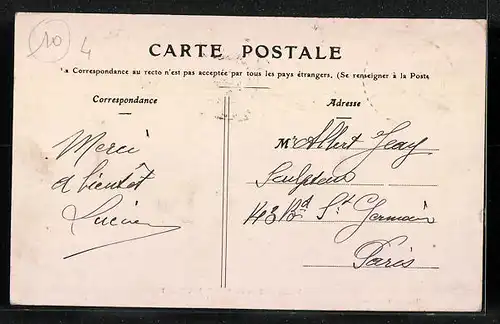 10
4
CARTE POSTALE
La Correspondance au recto n'est pas acceptée par tous les pays étrangers. (Se renseigner à la Poste
Correspondance
Merci
a bientôt
Lucien
Adresse
Mr Albert Jeay
Sculpteur
143 Bd St Germain
Paris